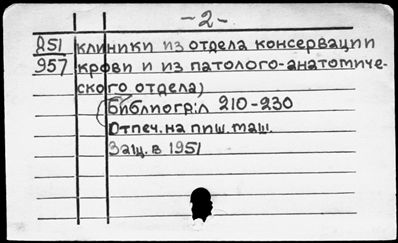 -2-
Д51 клиники из отдела консервации
957 крови и из патолого-анатомиче-
ского отдела)
Библиогр: л 210-230
Отпеч. на пиш. маш.
Защ. в 1951